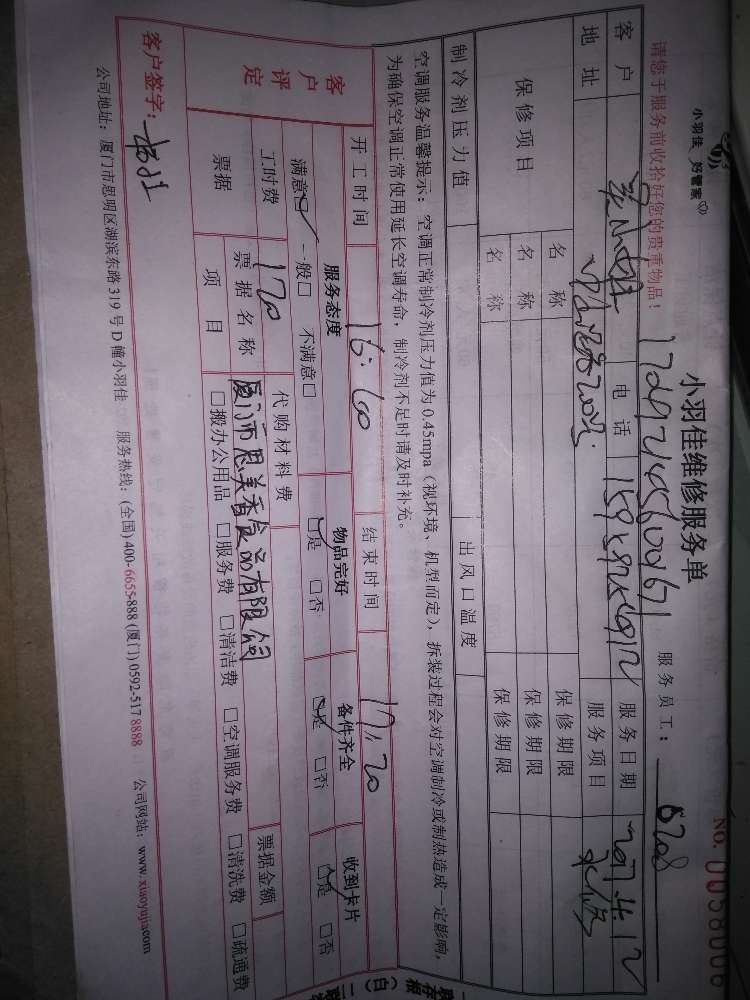 小羽佳 好管家
小羽佳维修服务单
NO. 0058006
请您于服务前收拾好您的贵重物品！
服务员工：
客户 电话 服务日期
地址 服务项目 水修
保修项目 名称 保修期限
名称 保修期限
名称 保修期限
制冷剂压力值 出风口温度
空调服务温馨提示：空调正常制冷剂压力值为0.45mpa（视环境、机型而定），拆装过程会对空调制冷或制热造成一定影响，
为确保空调正常使用延长空调寿命，制冷剂不足时请及时补充。
开工时间 16:00 结束时间 17:20
客户评定 服务态度 物品完好 备件齐全 收到卡片
满意☑ 一般□ 不满意□ ☑是 □否 ☑是 □否 ☑是 □否
工时费 170 代购材料费
票据 票据名称 厦门市思美香食品有限公司 票据金额
项目 □搬办公用品 □服务费 □清洁费 □空调服务费 □清洗费 □疏通费
客户签字：
公司地址：厦门市思明区湖滨东路319号D幢小羽佳 服务热线：(全国)400-6655-888 (厦门)0592-517 8888 公司网站：www.xiaoyujia.com